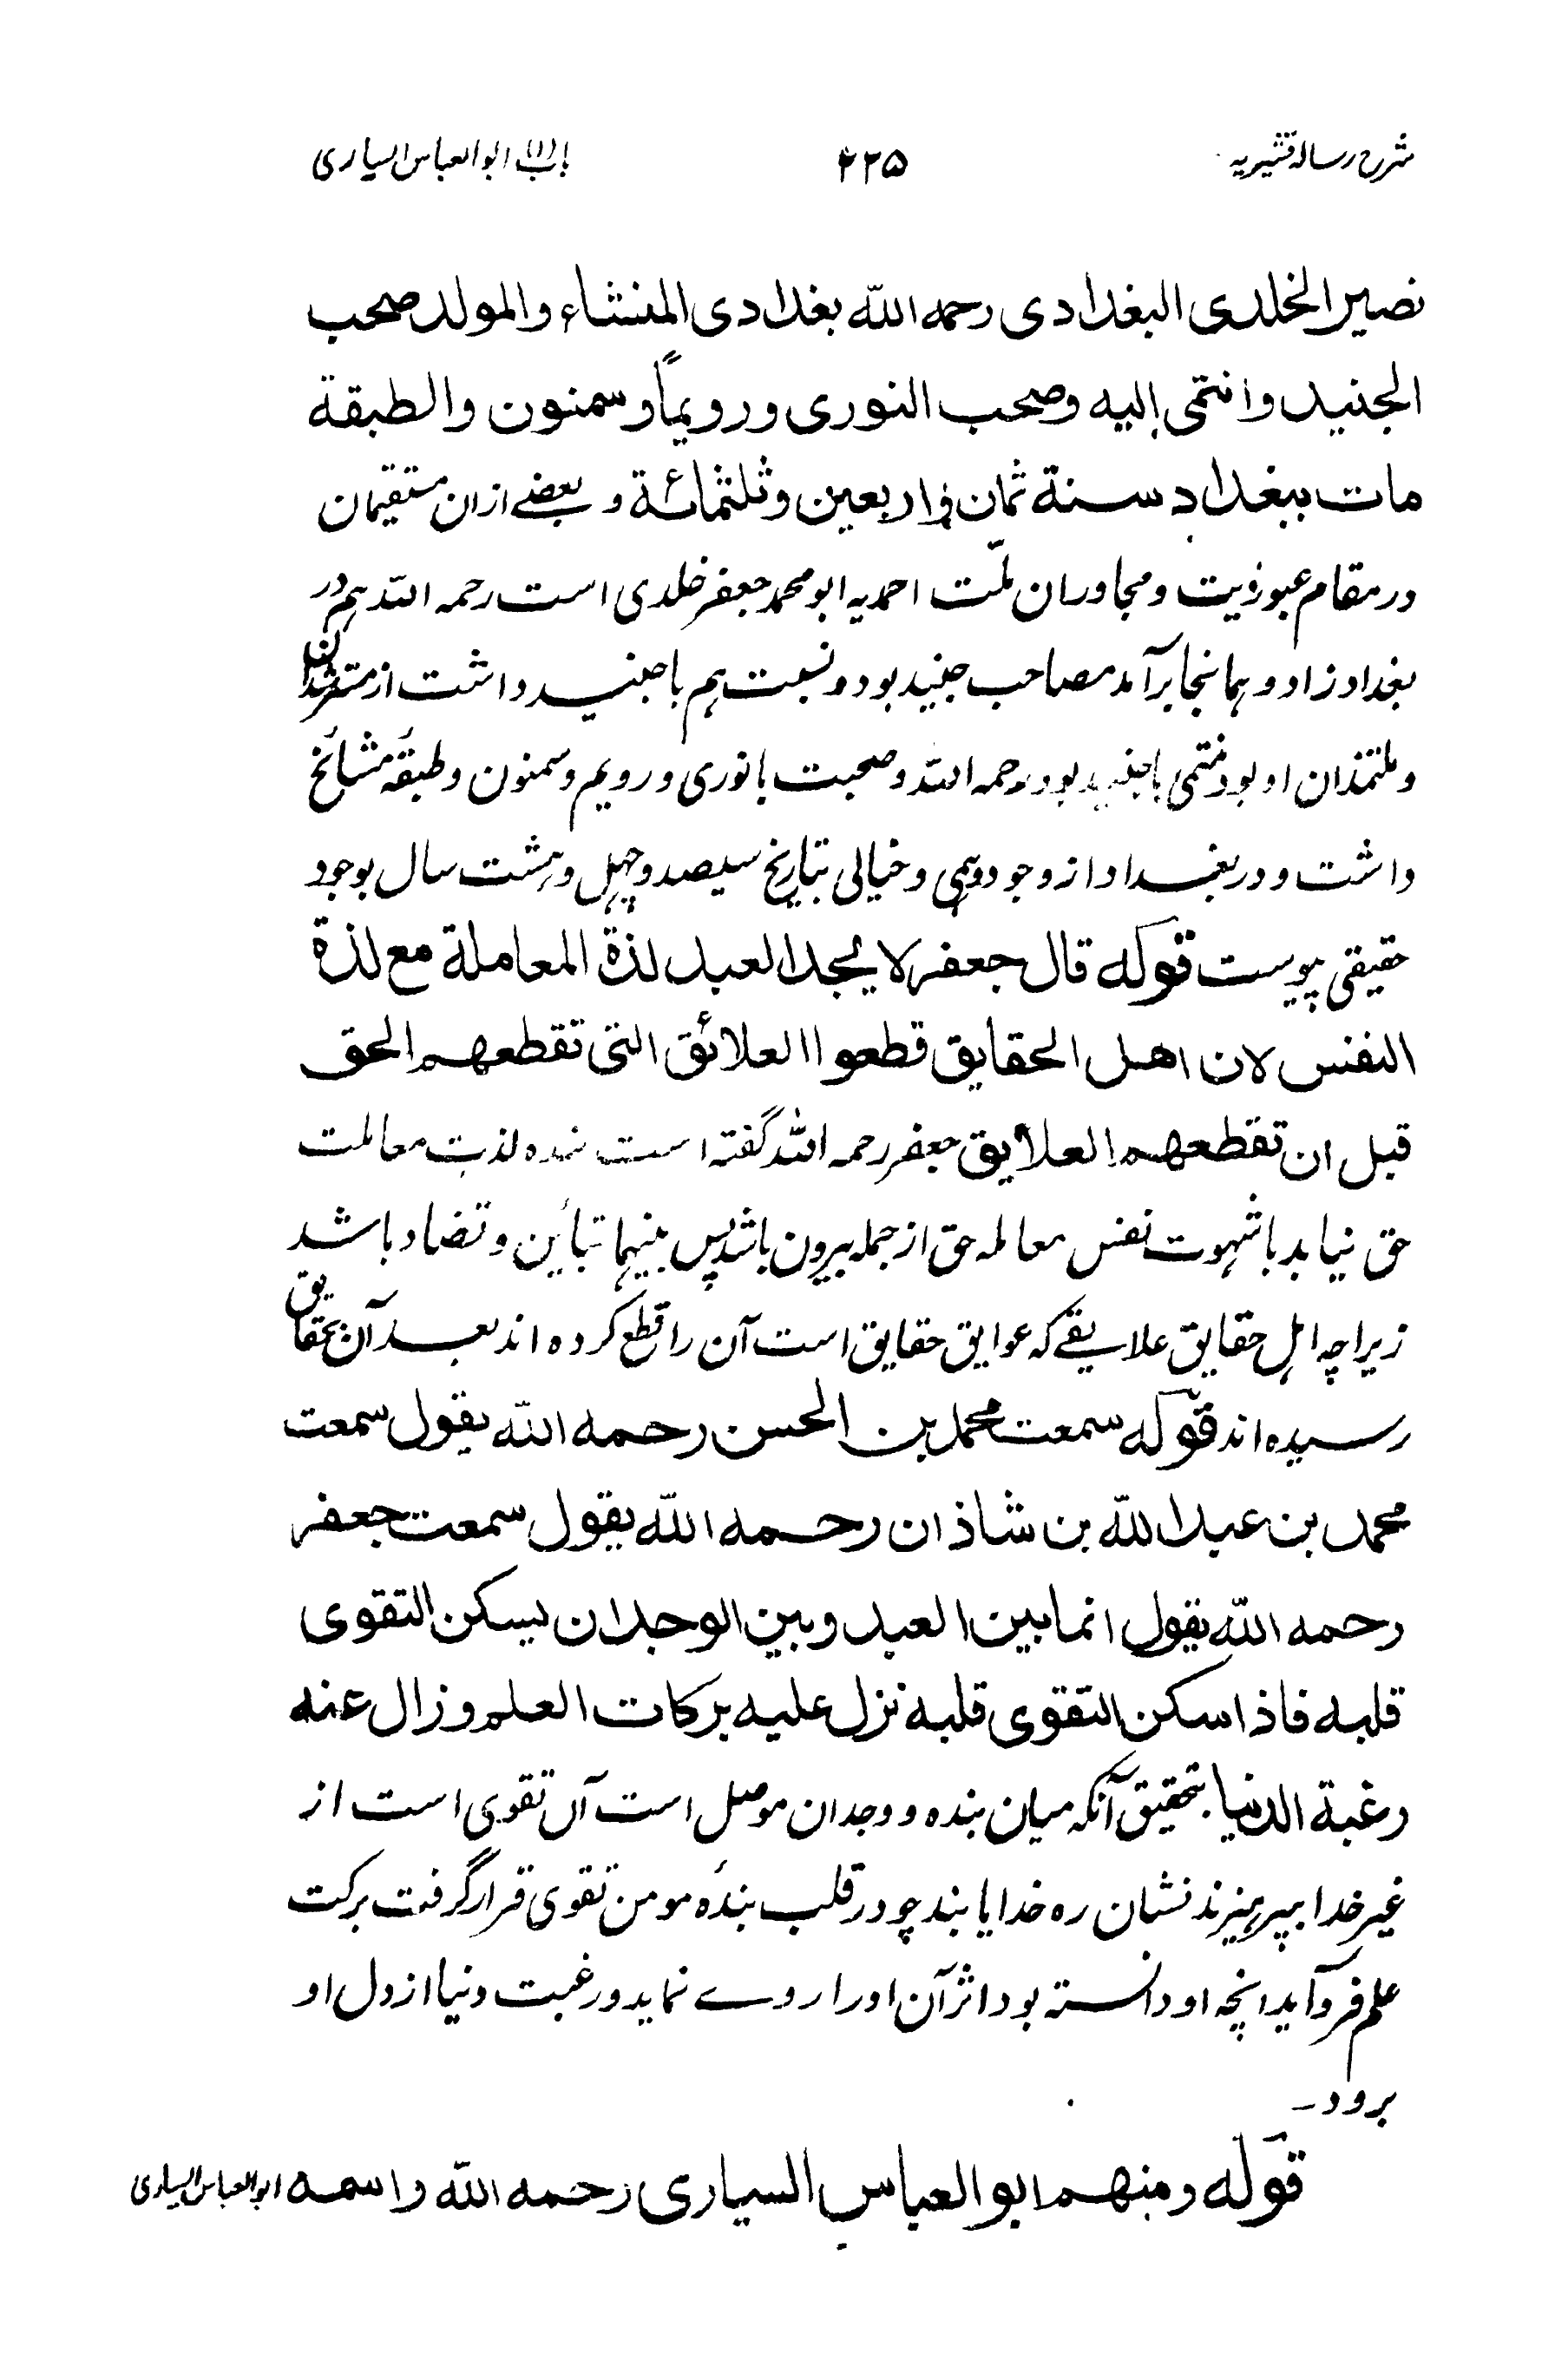 شرح رسالہ قشیریہ ۲۲۵ باب (۱) ابو العباس السیاری
نصیر الخلدی البغدادی رحمه اللّٰه بغدادی المنشاء والمولد صحب
الجنید وانتمی إلیه وصحب النوری ورویماً وسمنون والطبقة
مات ببغداد سنة ثمان واربعین وثلثمائة و بعضے ازان مستقیمان
در مقام عبودیت و مجاوران ملّت احمدیہ ابو محمد جعفر خلدی است رحمہ اللّٰہ ہم در
بغداد زاد و ہمانجا برآمد مصاحب جنید بود و نسبت ہم باجنید داشت از مسترشدان
و ملتمذان او بود منتمی باجنید بود رحمہ اللّٰہ وصحبت بانوری و رویم و سمنون و طبقۂ مشائخ
داشت و در بغداد از وجود وہمی و خیالی بتاریخ سیصد و چہل و ہشت سال بوجود
حقیقی پیوست قوله قال جعفر لا یجد العبد لذة المعاملة مع لذة
النفس لان اهل الحقایق قطعوا العلائق التی تقطعهم الحق
قبل ان تقطعهم العلایق جعفر رحمہ اللّٰہ گفتہ است بندہ لذت معاملت
حق نیابد باشہوت نفس معاملہ حق از جملہ بیرون باشد پس بینہما تبائین و تضاد باشد
زیراچہ اہل حقایق علایقے کہ عوایق حقایق است آن را قطع کردہ اند بعد آن بحقایق
رسیدہ اند قوله سمعت محمد بن الحسن رحمه اللّٰه یقول سمعت
محمد بن عبد اللّٰه بن شاذان رحمه اللّٰه یقول سمعت جعفر
رحمه اللّٰه یقول انما بین العبد وبین الوجدان یسکن التقوی
قلبه فاذا سکن التقوی قلبه نزل علیه برکات العلم وزال عنه
رغبة الدنیا بتحقیق آنکہ میان بندہ و وجدان موصل است آں تقوی است از
غیر خدا بپرہیزند نشان رہ خدا یابند چو در قلب بندۂ مومن تقوی قرار گرفت برکت
علم فروآید انچہ او دانستہ بود اثر آن اورا روے نماید و رغبت دنیا از دل او
برود ـ
قوله ومنهم ابو العباس السیاری رحمه اللّٰه واسمه ابو العباس السیاری